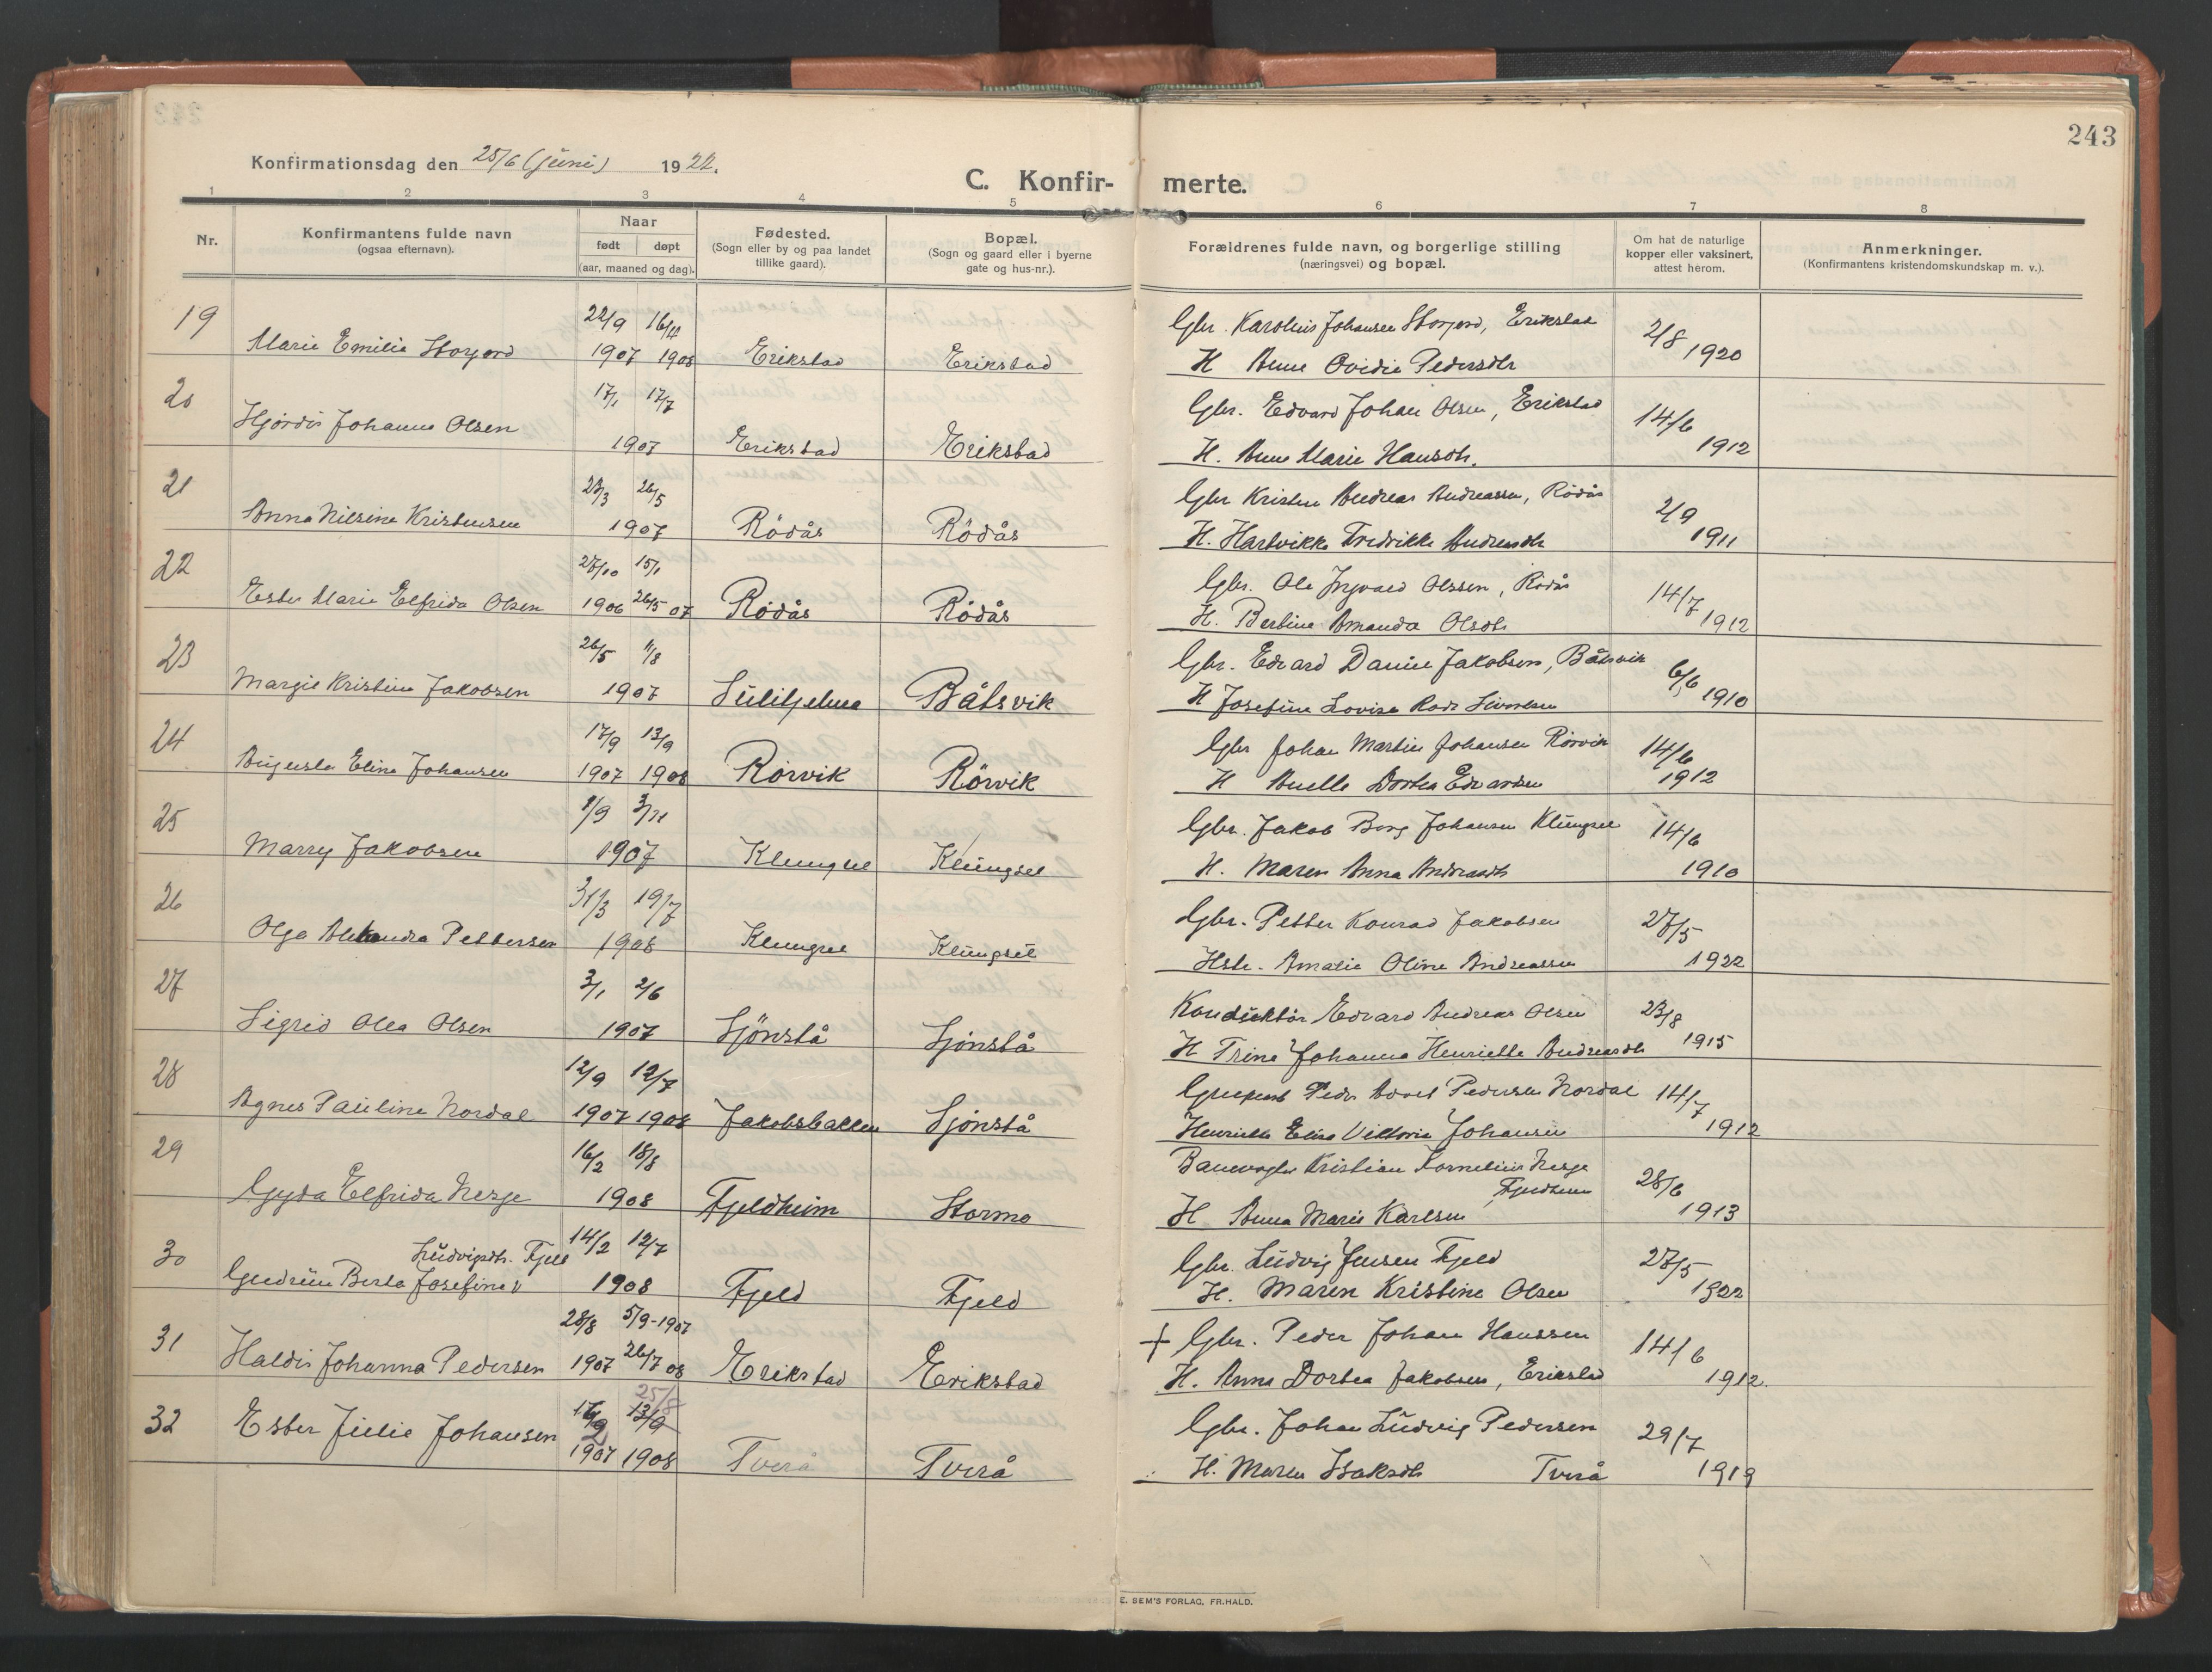 243
Konfirmationsdag den 25/6 (juni) 1922.
C. Konfir- merte.
1 2 3 4 5 6 7 8
Nr.
Konfirmantens fulde navn
(ogsaa efternavn).
Naar
født døpt
(aar, maaned og dag).
Fødested.
(Sogn eller by og paa landet
tillike gaard).
Bopæl.
(Sogn og gaard eller i byerne
gate og hus-nr.).
Forældrenes fulde navn, og borgerlige stilling
(næringsvei) og bopæl.
Om hat de naturlige
kopper eller vaksinert,
attest herom.
Anmerkninger.
(Konfirmantens kristendomskundskap m. v.).
19 22/9 16/4 Gbr. Karolius Johansen Storjord, Erikstad 2/8
Marie Emilie Storjord 1907 1908 Erikstad Erikstad H Anne Ovidie Pedersdtr 1920
20 17/1 17/7 Gbr. Edvard Johan Olsen, Erikstad 14/6
Hjördis Johanne Olsen 1907 Erikstad Erikstad H. Anne Marie Hansdtr. 1912
21 23/3 26/5 Gbr Kristen Andreas Andreassen, Rödås 2/9
Anna Nilsine Kristensen 1907 Rödås Rödås H. Hartvikke Fredrikke Andreasdtr 1911
22 27/10 15/1 Gbr. Ole Ingvald Olssen, Rödås 14/7
Ester Marie Elfrida Olsen 1906 26/5 07 Rödås Rödås H. Bertine Amanda Olsdtr 1912
23 26/5 11/8 Gbr. Edvard Daniel Jakobsen, Båtsvik 6/6
Margit Kristine Jakobsen 1907 Sulitjelma Båtsvik H Josefine Lovise 1910
24 17/9 13/9 Gbr Johan Martin Johansen Rörvik 14/6
Augusta Eline Johansen 1907 1908 Rörvik Rörvik H Dortea Edvardsen 1912
25 1/9 3/11 Gbr. Jakob Berg Johansen Klungsel 14/6
Marry Jakobsen 1907 Klungsel Klungsel H. Maren Anna Andreasdtr 1910
26 31/3 19/7 Gbr. Petter Konrad Jakobsen 27/5
Olga Aleksandra Pettersen 1908 Klungsel Klungsel Hstr. Amalie Oline Andreassen 1922
27 3/1 2/6 Konduktör Edvard Andreas Olsen 23/8
Sigrid Olea Olsen 1907 Sjönstå Sjönstå H Trine Johanna Henriette Andreasdtr 1915
28 12/9 12/7 Peder Pedersen Nordal 14/7
Agnes Pauline Nordal 1907 1908 Jakobsbakken Sjönstå Henriette Elise Viktoria Johansen 1912
29 16/2 18/8 Banevogter Kristian Kornelius Nesje
Fjeldheim 28/6
Gyda Elfrida Nesje 1908 Fjeldheim Stormo H Anna Marie Karlsen 1913
30 Ludvigsdtr. Fjeld 14/2 12/7 Gbr. Ludvig Jensen Fjeld 27/5
Gudrun Berta Josefine 1908 Fjeld Fjeld H. Maren Kristine Olsen 1922
31 28/8 5/9-1907 + Gbr. Peder Johan Hanssen 14/6
Haldis Johanna Pedersen 1907 26/7 08 Erikstad Erikstad H. Anna Dortea Jakobsen, Erikstad 1912.
25/8
32 Ester Julie Johansen 13/9 Gbr. Johan Ludvig Pedersen 29/7
1907 1908 Tverå Tverå H. Maren Isaksdtr Tverå 1919
E. SEM'S FORLAG, FR.HALD.